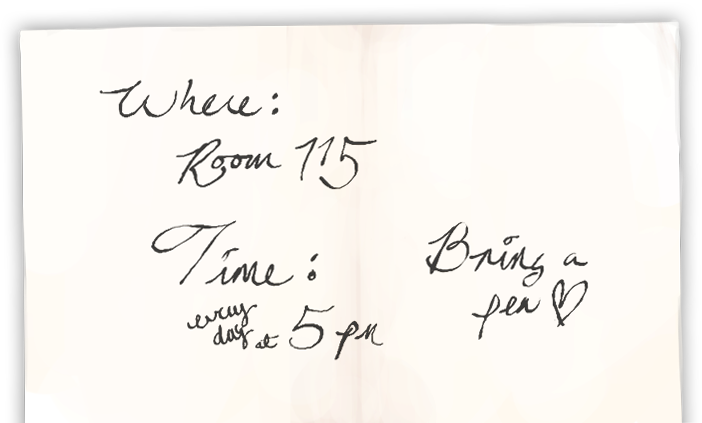 Where:
Room 115
Time:
every
day at 5 pm
Bring a
pen ♡